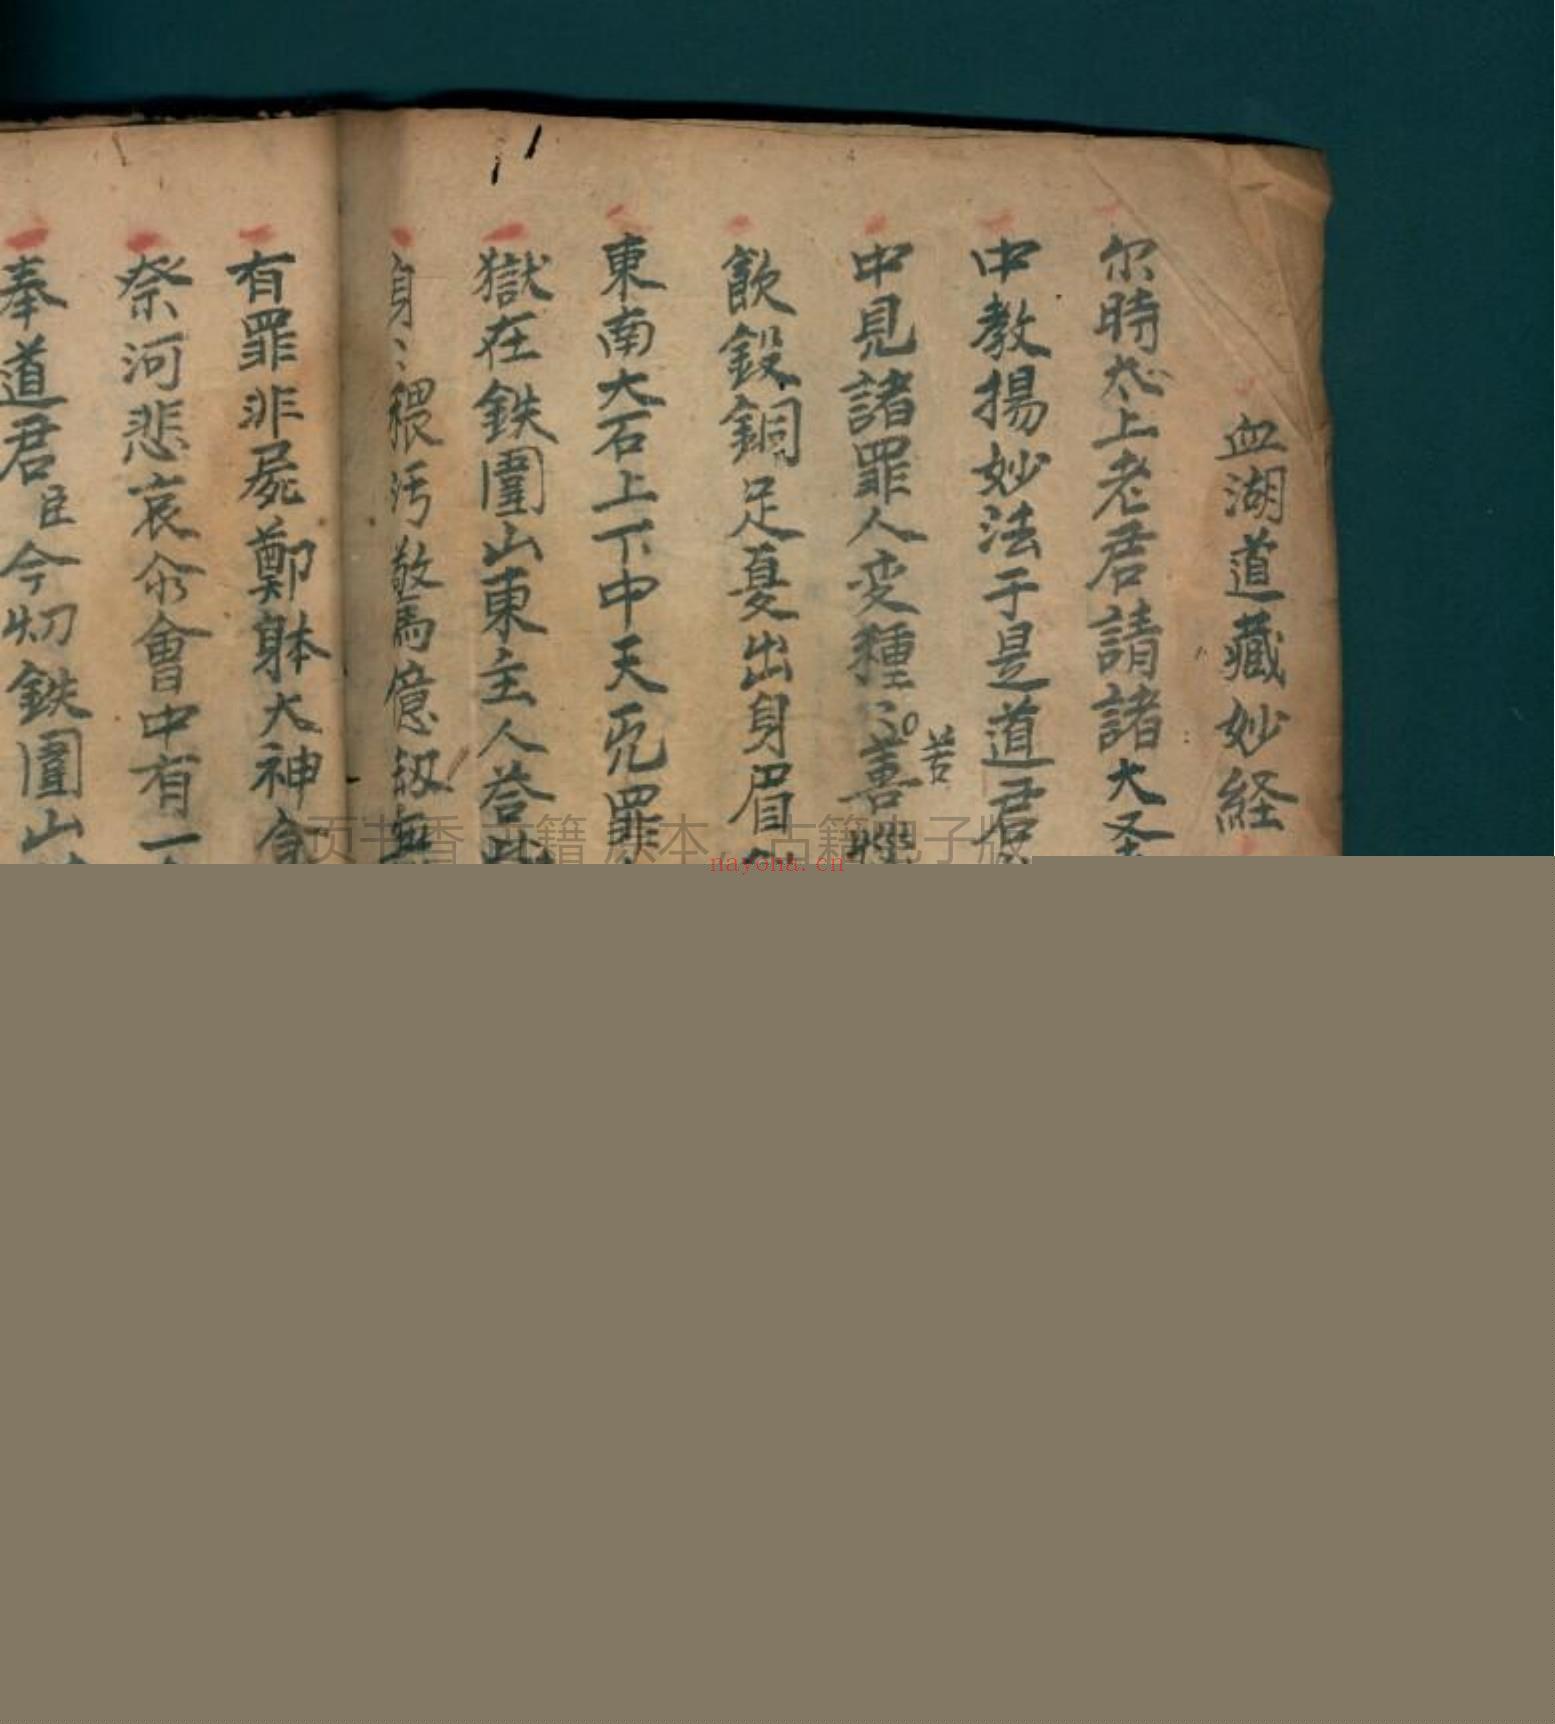 血湖道藏妙経
尔時太上老君請諸大圣
中教揚妙法于是道君
中見諸罪人变種〻善
苦
飲鋑銅足戛出身眉
東南大石上下中天死罪
獄在鉄圍山東主人答此
身〻穢污敬馬億劫無
有罪非屍鄭躰大神食
祭河悲哀尒會中有一
奉道君臣今切鉄圍山
一页书香 古籍 原本 古籍电子版
nayona.cn